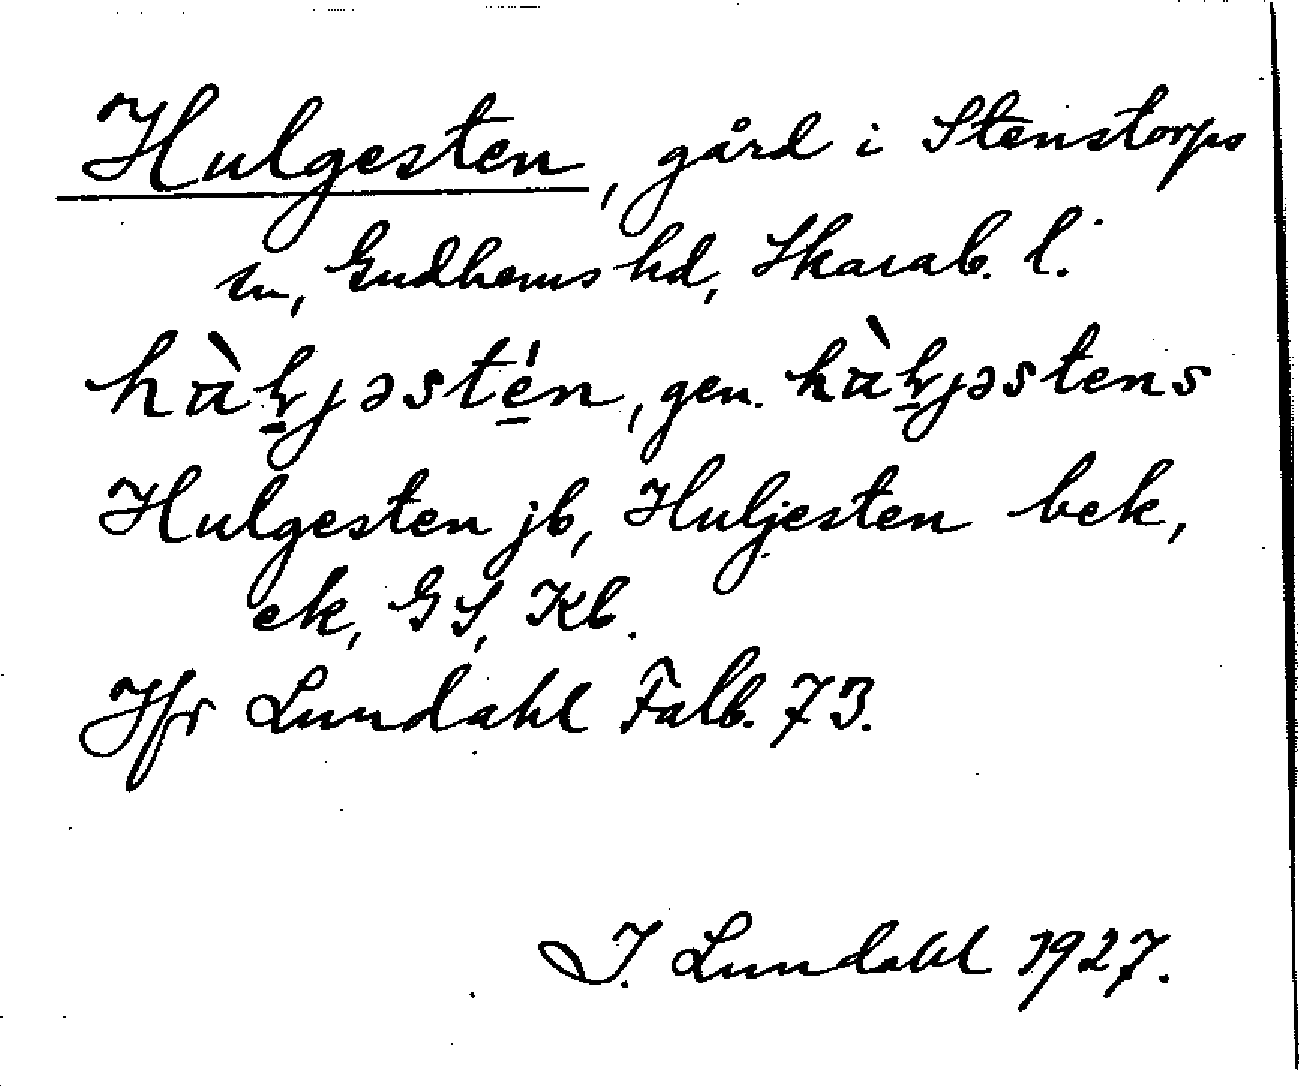 Hulgesten, gård i Stenstorps
sn, Gudhems hd, Skarab. l.
gen.
Hulgesten jb, Huljesten bek,
ek, GS, Kb.
Jfr Lundahl Falb. 73.
I. Lundahl 1927.